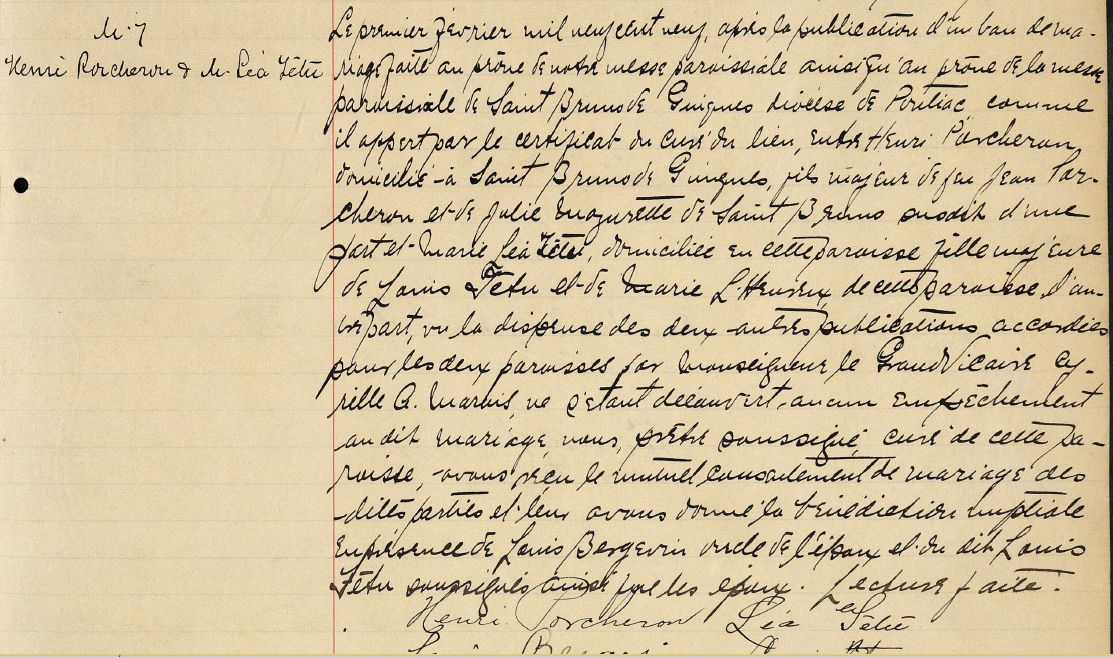 M. 7
Henri Porcheron & M. Léa Têtu
Le premier février mil neuf cent neuf, après la publication d'un ban de ma-
riage faite au prône de notre messe paroissiale ainsi qu'au prône de la messe
paroissiale de Saint Bruno de Guigues diocèse de Pontiac comme
il appert par le certificat du curé du lieu, entre Henri Porcheron,
domicilié à Saint Bruno de Guigues, fils majeur de feu Jean Por-
cheron et de Julie Mazurette de Saint Bruno susdit d'une
part et Marie Léa Têtu, domiciliée en cette paroisse fille majeure
de Louis Têtu et de Marie L'Heureux, de cette paroisse, d'au-
tre part, vu la dispense des deux autres publications accordées
pour les deux paroisses par Monseigneur le Grand Vicaire Cy-
rille A. Marois, ne s'étant découvert aucun empêchement
au dit mariage, nous, prêtre soussigné, curé de cette pa-
roisse, avons reçu le mutuel consentement de mariage des
dites parties et leur avons donné la bénédiction nuptiale
en présence de Louis Bergevin oncle de l'époux et du dit Louis
Têtu soussignés ainsi que les époux. Lecture faite.
Henri Porcheron Léa Têtu